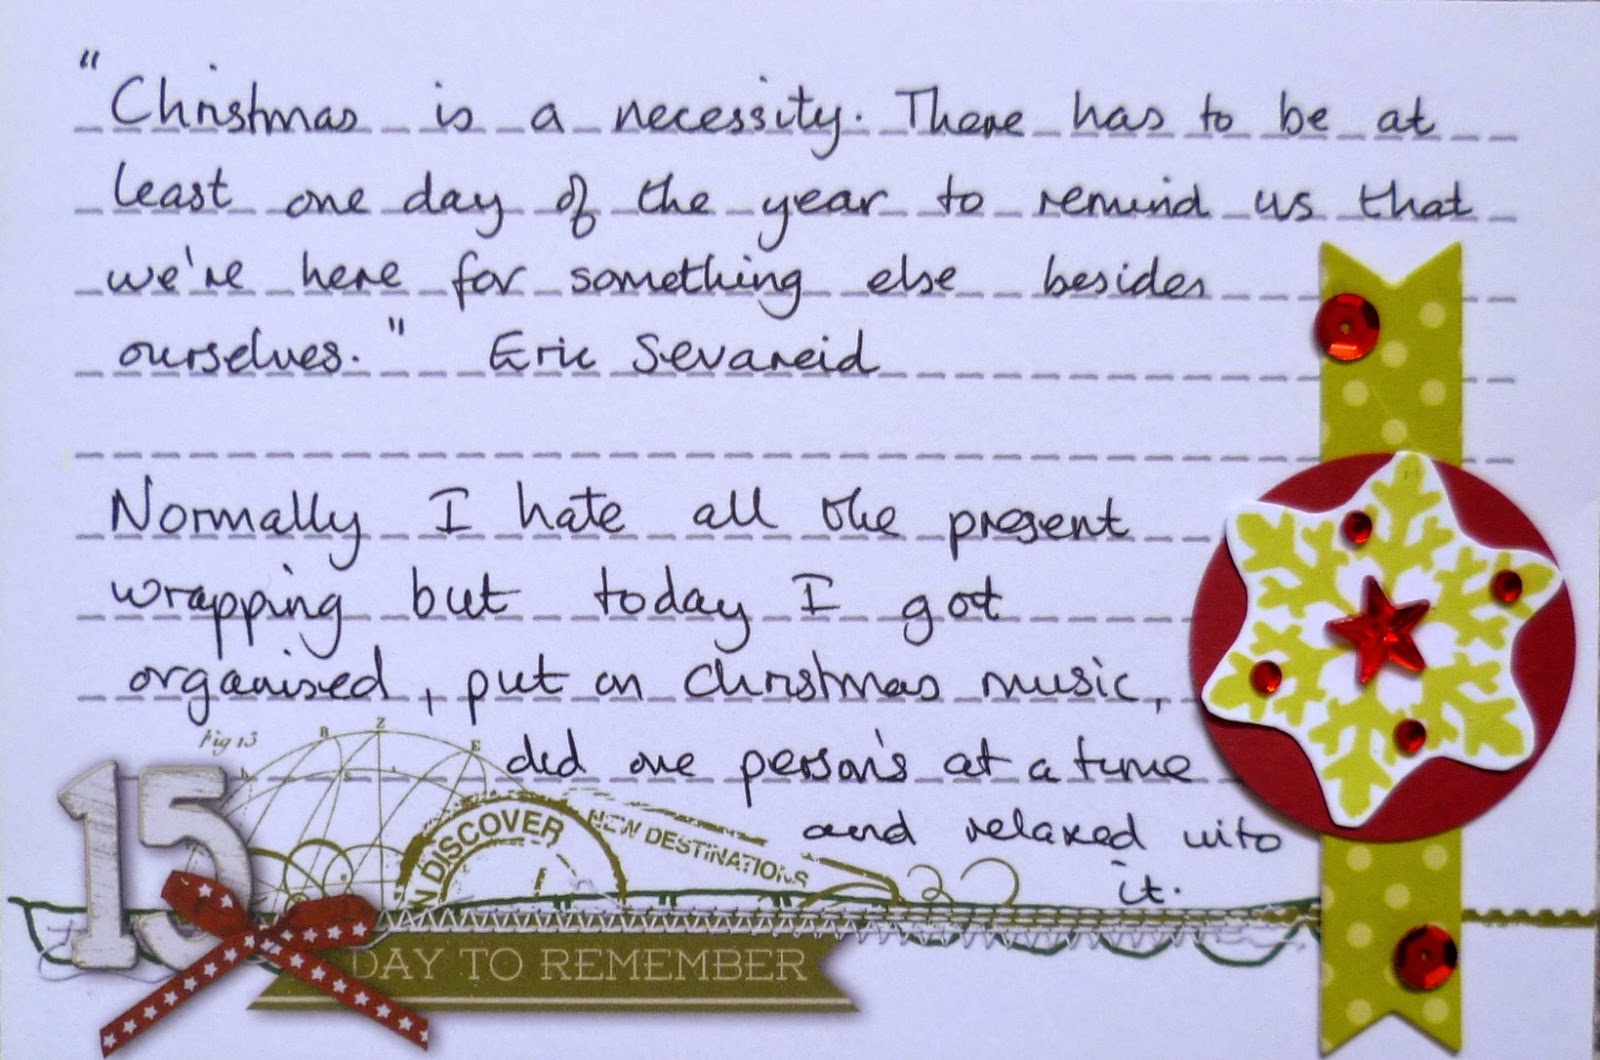 "Christmas is a necessity. There has to be at
least one day of the year to remind us that
we're here for something else besides
ourselves." Eric Sevareid
Normally I hate all the present
wrapping but today I got
organised, put on Christmas music,
did one person's at a time
and relaxed into
it.
Fig 13
B Z E
15
DISCOVER
NEW DESTINATIONS
DAY TO REMEMBER